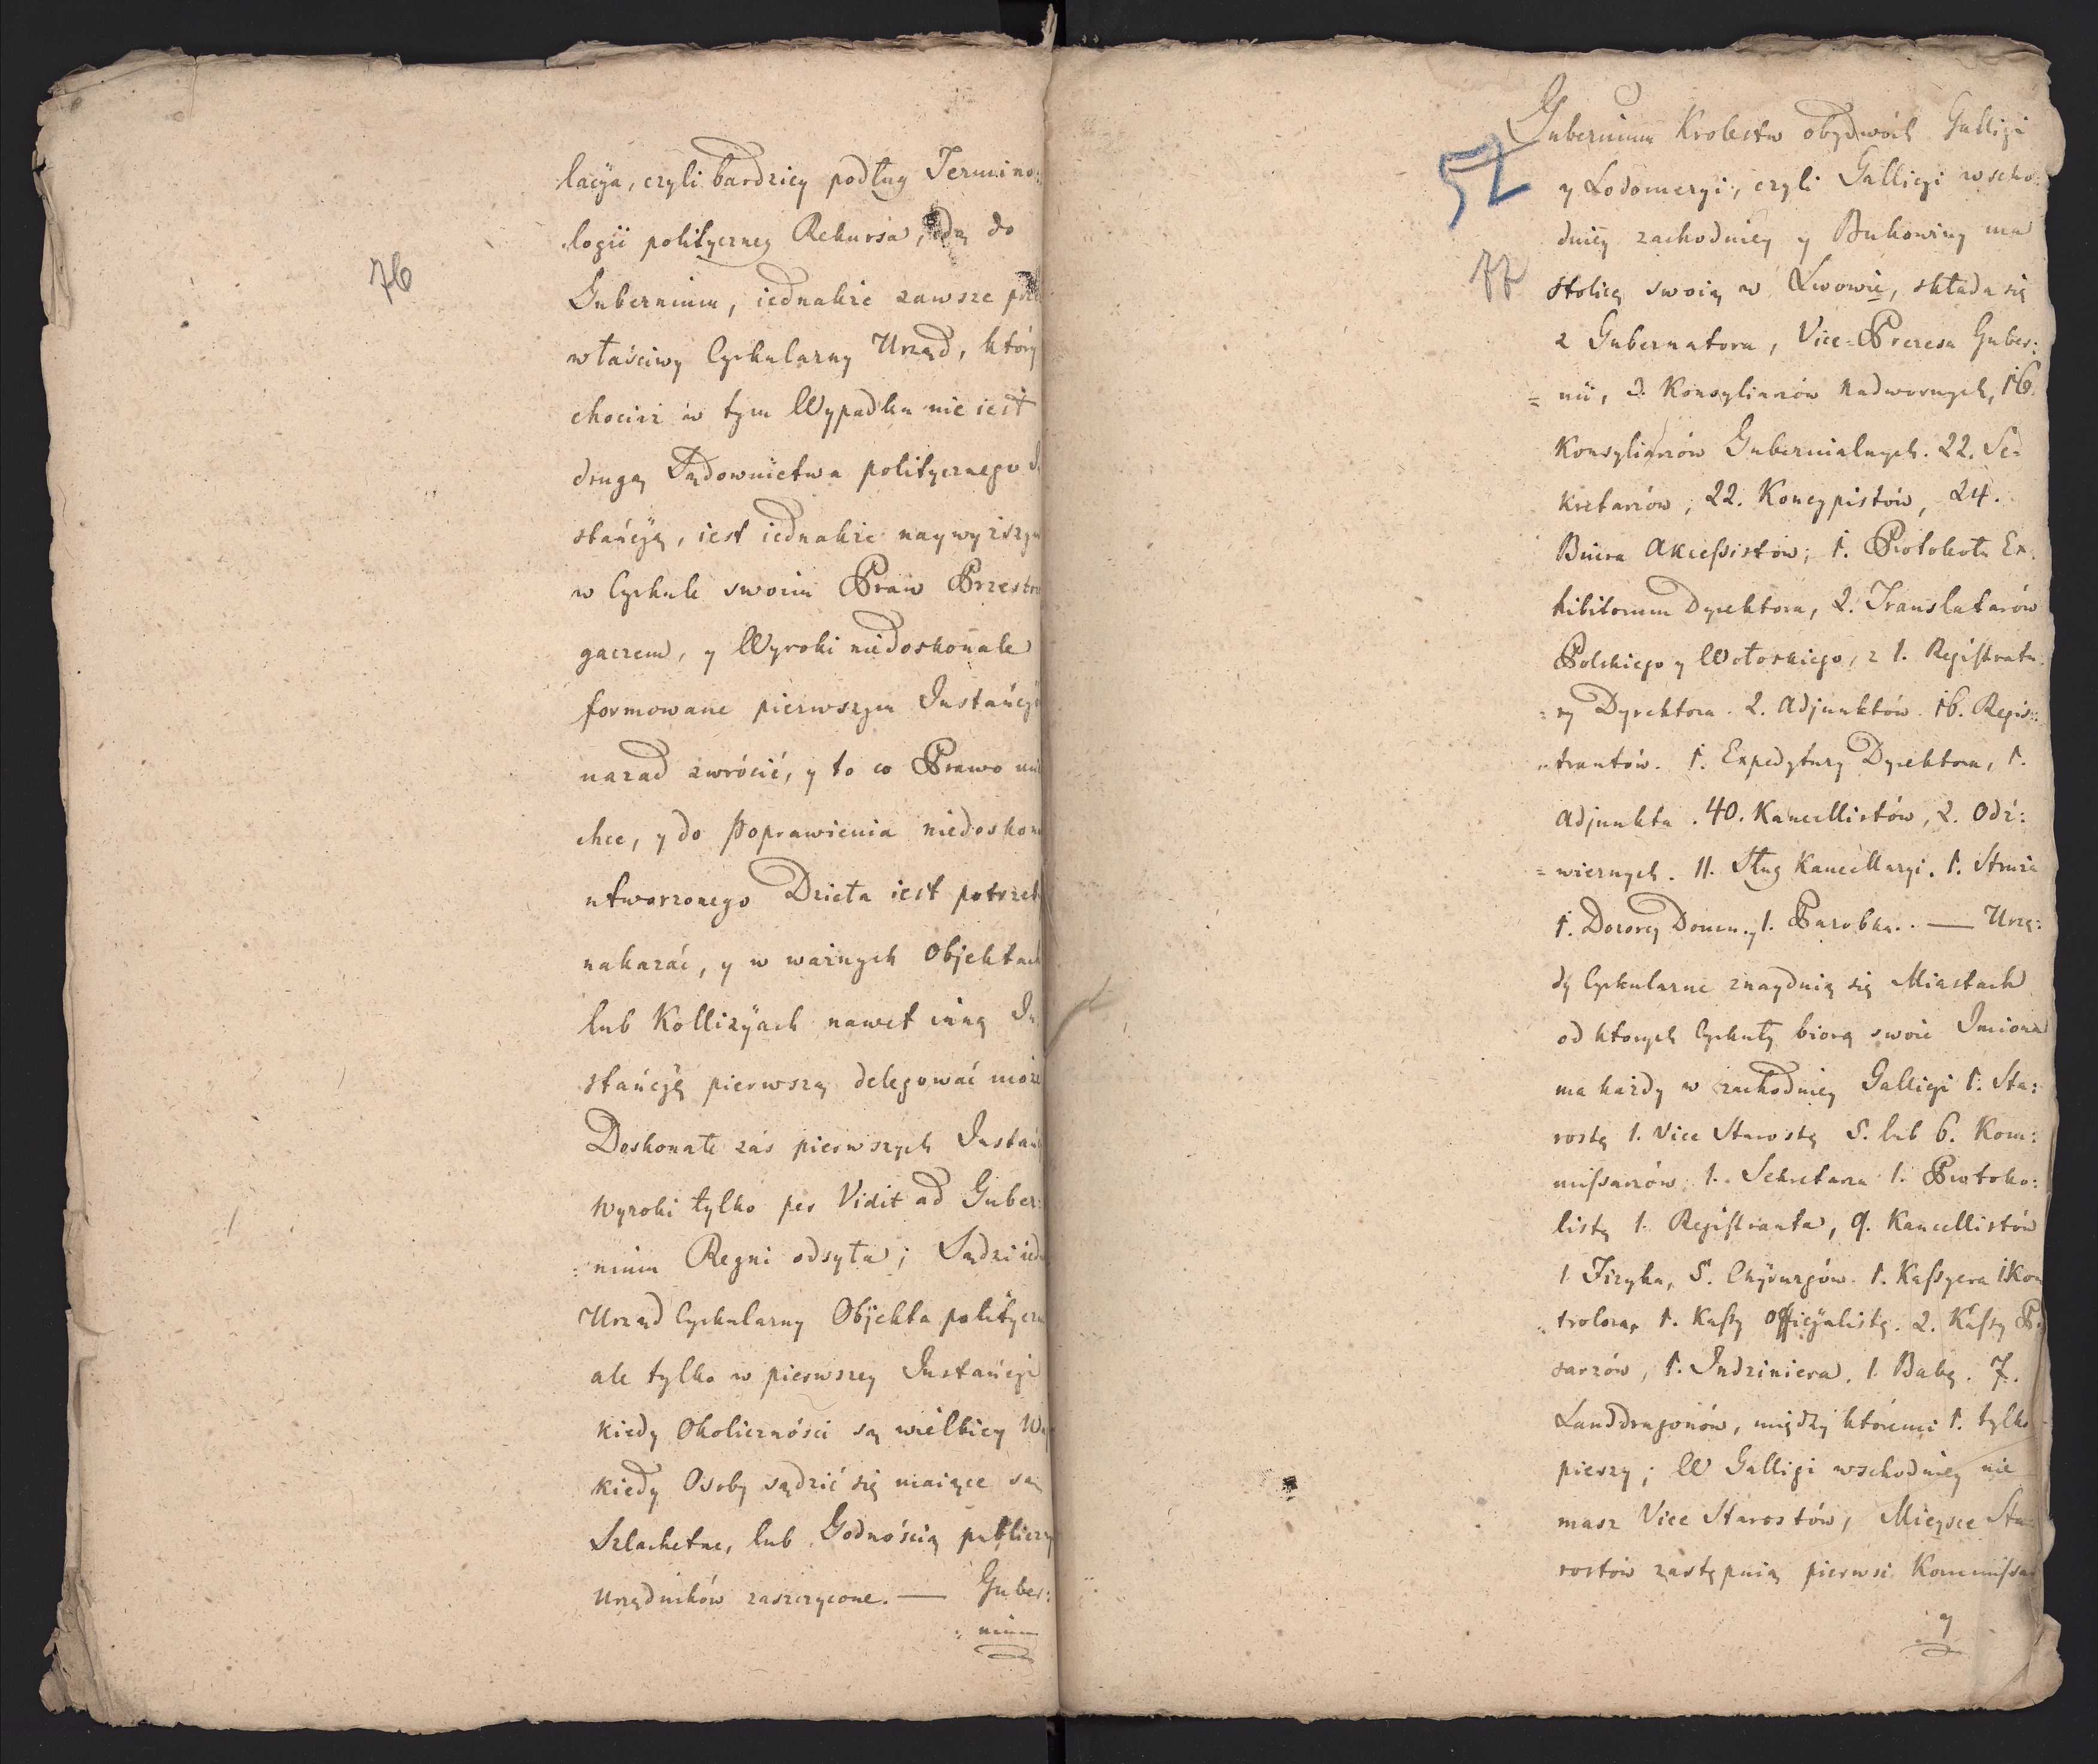 76
lacÿa, czyli bardziey podług Termino:
logii polityczney Rekursa, idą do
Gubernium, iednakże zawsze prze
właściwy Cyrkularny Urząd, który
chociaż w tym Wypadku nie iest
drugą Sądownictwa politycznego
stańcÿą, iest iednakże naywyższym
w Cyrkule swoim Praw Przestrze
gaczem, y Wyroki niedoskonale
formowane pierwszym Instańcÿ
nazad zwrócić, y to co Prawo mie
chce, y do Poprawienia niedoskona
utworzonego Dzieła iest potrzeb
nakazać, y w ważnych Objektach
lub Kollizÿach nawet inną In
stańcÿę pierwszą delegować może
Doskonałe zaś pierwszych Instań
Wyroki tylko per Vidit ad Guber:
nium Regni odsyła; Sądzi ied
Urząd Cyrkularny Objekta polityczn
ale tylko w pierwszey Instańcÿi
kiedy Okoliczności są wielkiey Wa
kiedy Osoby sądzić się maiące są
Szlachetne, lub Godnością publiczny
Urzędników zaszczycone. — Guber:
: nium
52
77
Gubernium Krolestw obydwóch Gallicyi
y Lodomeryi, czyli Gallicyi wscho:
dniey zachodniey y Bukowiny ma
Stolicę swoią w Lwowie, składa się
z Gubernatora, Vice-Prezesa Guber:
= nii, 3. Konsyliarzów Nadwornych, 16.
Konsyliarzów Gubernialnych. 22. Se:
kretarzów, 22. Koncypistów, 24.
Biura Akcessistów; 1. Protokołu Ex:
hibitorum Dyrektora, 2. Translatarów
Polskiego y Wołoskiego, z 1. Registratu
= ry Dyrektora. 2. Adjunktów. 16. Regis:
= trantów. 1. Expedytury Dyrektora, 1.
Adjunkta. 40. Kancellistów, 2. Odź:
= wiernych. 11. Sług Kancellaryi. 1. Stroża
1. Dozorcy Domu. y 1. Parobka. — Urzę:
dy Cyrkularne znaydnią się Miastach
od ktorych Cyrkuły biorą swoie Imiona
ma każdy w zachodniey Gallicyi 1. Sta:
rostę 1. Vice Starostę 5. lub 6. Kom:
missarzów. 1. Sekretarza 1. Protoko:
listę 1. Registranta, 9. Kancellistów
1. Fizyka, 5. Chÿrurgów. 1. Kassyera 1 Kon
= trolora, 1. Kassy Officÿalistę. 2. Kassy Pi
sarzów, 1. Indziniera. 1. Babę. 7.
Landdragonów, między któremi 1. tylko
pieszy; W Gallicyi wschodniey nie
masz Vice Starostów, Mieysce Sta
rostów zastępnią pierwsi Kommissar
y